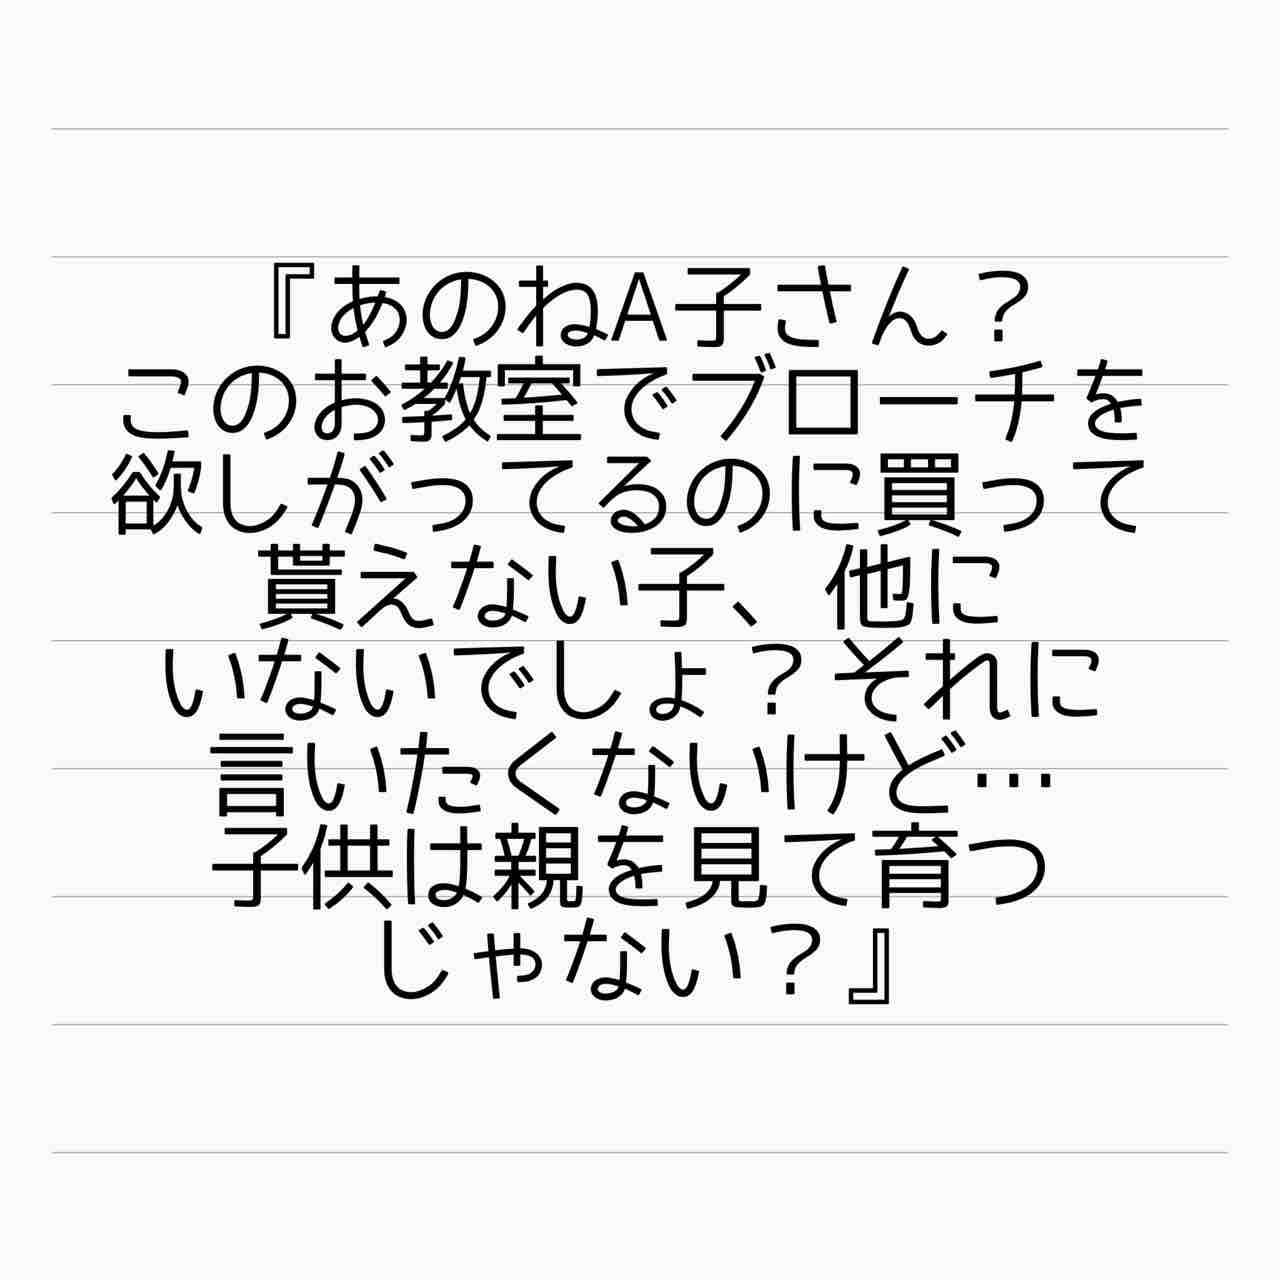 『あのねA子さん？
このお教室でブローチを
欲しがってるのに買って
貰えない子、他に
いないでしょ？それに
言いたくないけど…
子供は親を見て育つ
じゃない？』